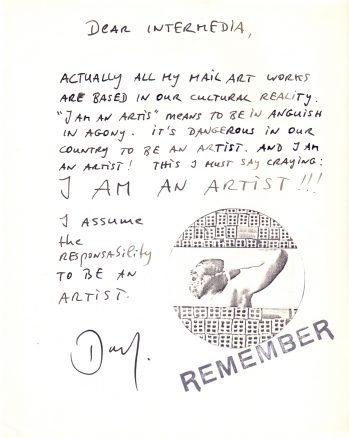 DEAR INTERMEDIA,
ACTUALLY ALL MY MAIL ART WORKS
ARE BASED IN OUR CULTURAL REALITY.
"I AM AN ARTIS" MEANS TO BE IN ANGUISH
IN AGONY. IT'S DANGEROUS IN OUR
COUNTRY TO BE AN ARTIST. AND I AM
AN ARTIST! THIS I MUST SAY CRAYING:
I AM AN ARTIST!!!
I ASSUME
the
RESPONSAbility
TO BE AN
ARTIST.
REMEMBER